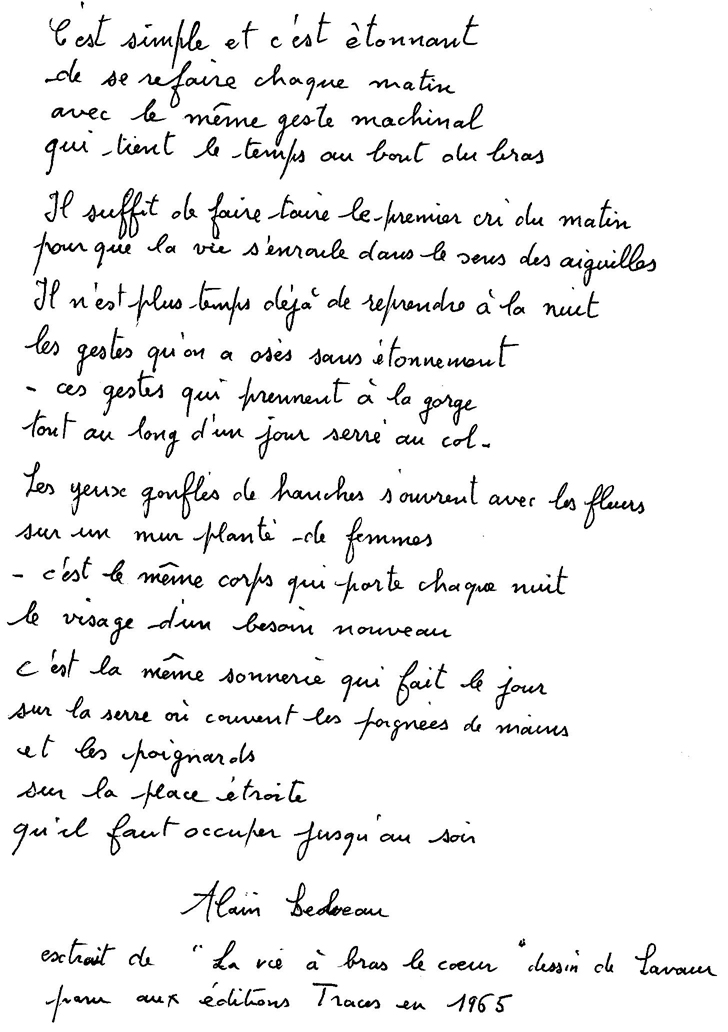 C'est simple et c'est étonnant
de se refaire chaque matin
avec le même geste machinal
qui tient le temps au bout du bras
Il suffit de faire taire le premier cri du matin
pour que la vie s'enroule dans le sens des aiguilles
Il n'est plus temps déjà de reprendre à la nuit
les gestes qu'on a osés sans étonnement
- ces gestes qui prennent à la gorge
tout au long d'un jour serré au col -
Les yeux gonflés de hanches s'ouvrent avec les fleurs
sur un mur planté de femmes
- c'est le même corps qui porte chaque nuit
le visage d'un besoin nouveau
c'est la même sonnerie qui fait le jour
sur la serre où couvent les poignées de mains
et les poignards
sur la place étroite
qu'il faut occuper jusqu'au soir
Alain
extrait de "La vie à bras le coeur" dessin de Lavaur
paru aux éditions Traces en 1965